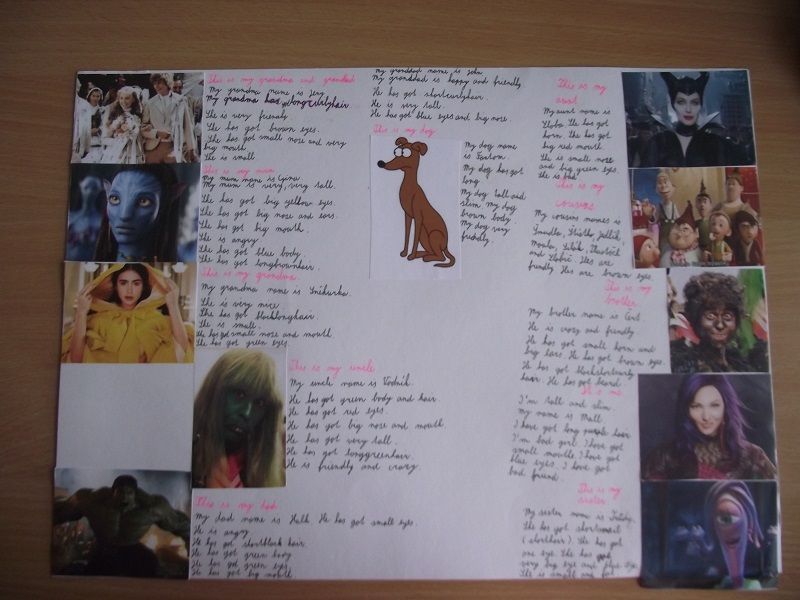 This is my grandma and grandad
My grandma name is Jeny
My grandma has got longcurlyhair
She is very friendly
She has got brown eyes.
She has got small nose and very
big mouth.
She is small
This is my mum
My mum name is
My mum is very, very tall.
She has got big yellow eyes.
She has got big nose and ears.
She has got big mouth.
She is angry
She has got blue body.
She has got longbrownhair.
This is my grandma
My grandma name is Sněhurka.
She is very nice.
She has got blacklonghair.
She is small.
She has got small nose and mouth
She has got green eyes.
This is my uncle
My uncle name is Vodník.
He has got green body and hair
He has got red eyes.
He has got big nose and mouth
He has got very tall.
He has got longgreenhair.
He is friendly and crazy.
This is my dad
My dad name is Hulk He has got small eyes.
He is angry
He has got shortblack hair.
He has got green body
He has got green eyes.
He has got big mouth
My granddad name is John
My granddad is happy and friendly
He has got shortcurlyhair.
He is very tall.
He has got blue eyes and big nose.
This is my dog
My dog name
is
My dog has got
long
My dog tall and
slim My dog
brown body
My dog very
friendly.
This is my
aunt
My aunt name is
She has got
horn. She has got
big red mouth.
She is small nose
and big green eyes.
She is bad
This is my
cousins
My cousins names is
and
friendly are brown eyes.
This is my
brother
My brother name is
He is crazy and friendly
He has got small horn and
big ears. He has got brown eyes.
He has got blackshortcurly
hair. He has got beard
It is me
I'm tall and slim.
my name is Mall
I have got long purple hair
I'm bad girl. I have got
small mouth. I have got
blue eyes. I have got
bad friend.
This is my
sister
My sister name is
She has got
(shorthair). She has got
one eye. She has got
very big eye and
She is small and